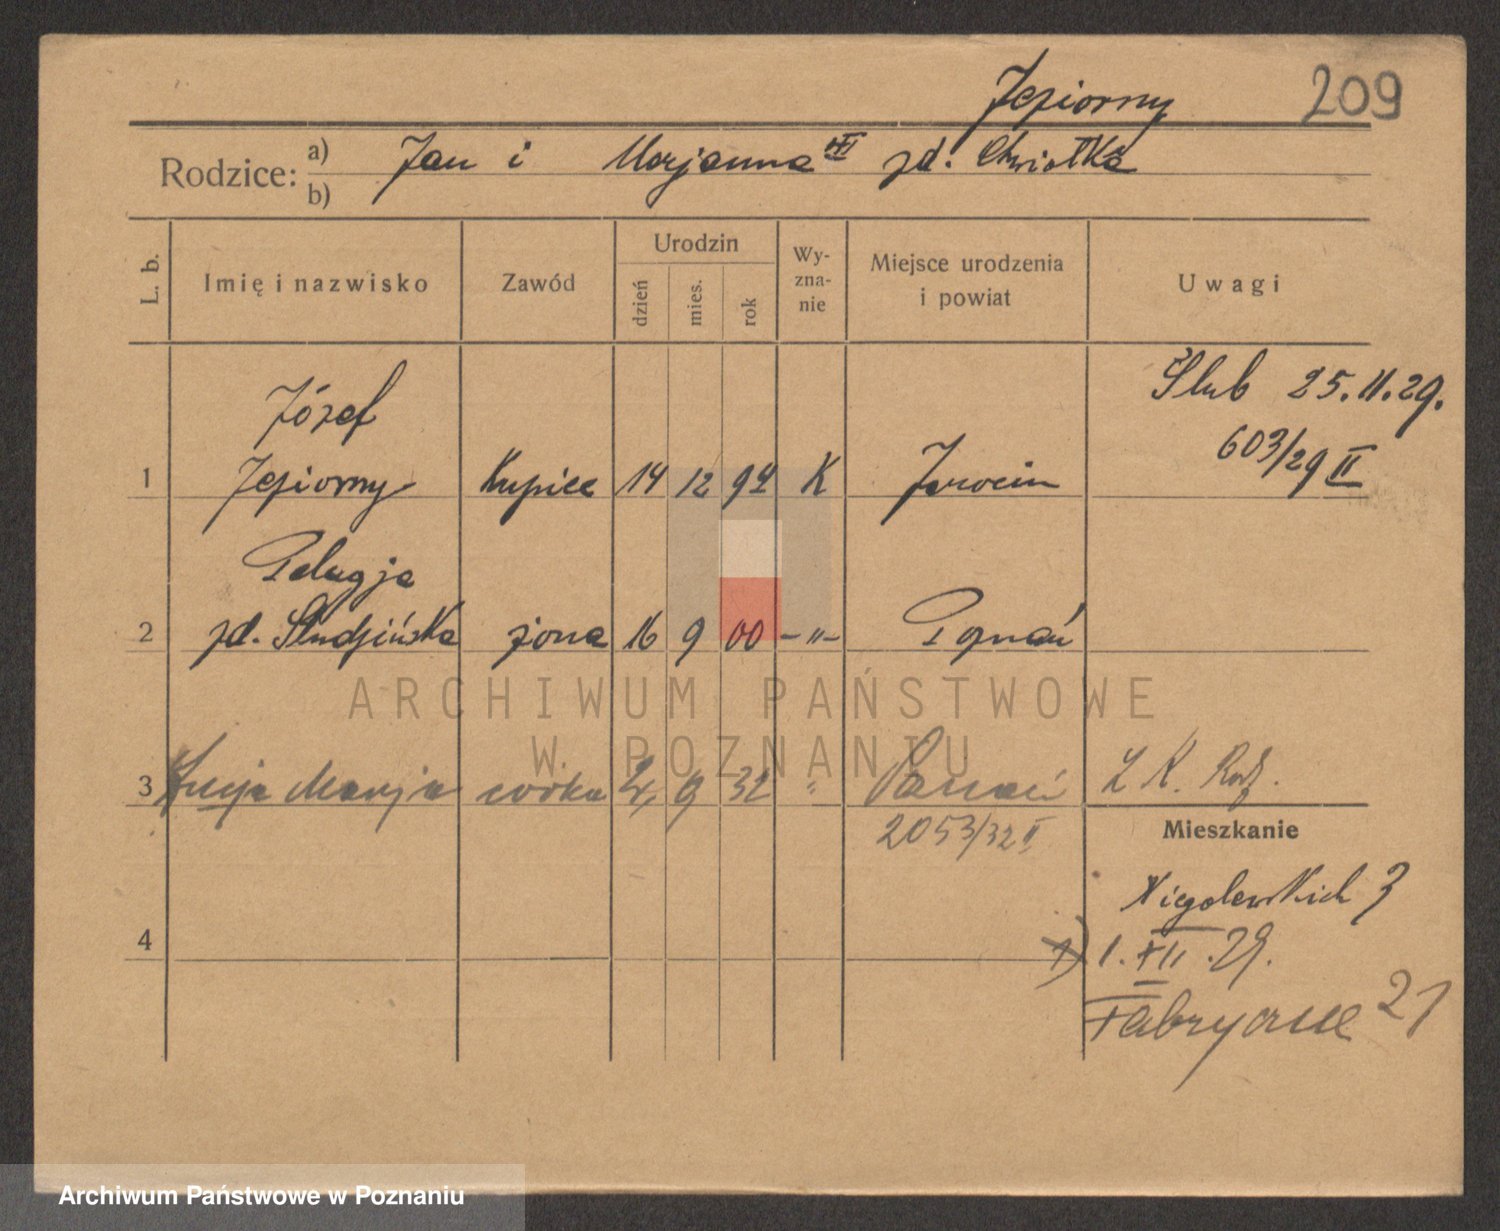 Jeziorny 209
Rodzice: a) Jan i Marjanna zd. Chwiałka
b)
L. b. Imię i nazwisko Zawód Urodzin dzień mies. rok Wy-zna-nie Miejsce urodzenia i powiat Uwagi
Józef Ślub 25.11.29.
1 Jeziorny Kupiec 14 12 94 K Jarocin 603/29 II
Pelagja
2 zd. Studzińska żona 16 9 00 –"– Poznań
ARCHIWUM PAŃSTWOWE
W POZNANIU
3 Łucja Marja córka 9 32 " Poznań
2053/32 II
Mieszkanie
Niegolewskich 3
4 1) 1. XII. 29.
Fabryczna 21
Archiwum Państwowe w Poznaniu